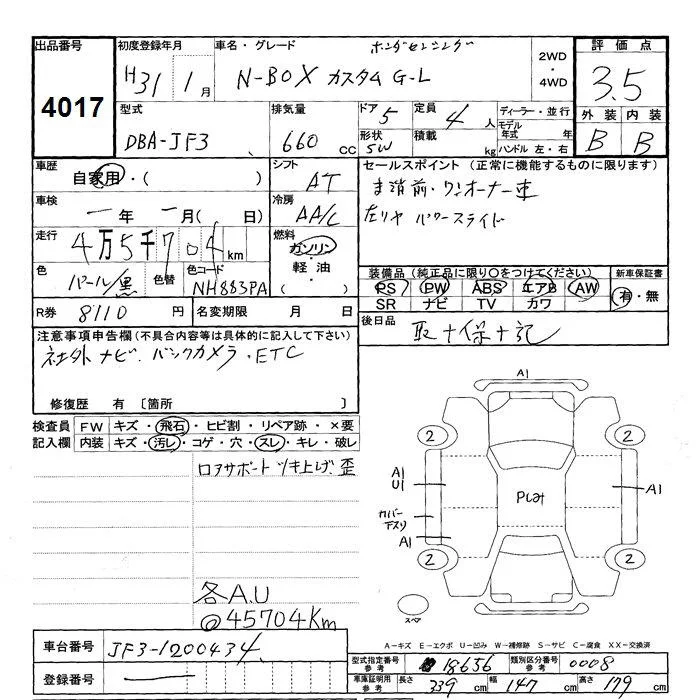 出品番号
4017
初度登録年月
H31 1月
車名・グレード
ホンダセンシング
N-BOX カスタム G-L
2WD
・
4WD
評価点
3.5
外装 内装
B B
型式
DBA-JF3
排気量
660 cc
ドア 5
形状 5W
定員 4人
積載 kg
ディーラー・並行
モデル年式 年
ハンドル 左・右
車歴
自家用・( )
シフト
AT
セールスポイント (正常に機能するものに限ります)
ま消前・ワンオーナー車
左リヤ パワースライド
車検
一年 一月( 日)
冷房
AA/C
走行
4万5千704km
燃料
ガソリン・
軽油・
( )
色
パール/黒
色替
色コード
NH883PA
装備品 (純正品に限り○をつけてください)
PS PW ABS エアB AW
SR ナビ TV カワ
新車保証書
有・無
R券 8110円
名変期限 月 日
後日品
取+保+記
注意事項申告欄 (不具合内容等は具体的に記入して下さい)
社外ナビ. バックカメラ. ETC
修復歴 有 〔箇所 〕
検査員
記入欄
FW キズ・飛石・ヒビ割・リペア跡・×要
内装 キズ・汚レ・コゲ・穴・スレ・キレ・破レ
ロアサポートツキ上げ、歪
各A.U
@45704Km
A1
2 2
A1
U1
Pしみ
A1
カバー
下スリ
A1
2 2
スペア
A-キズ E-エクボ U-凹み W-補修跡 S-サビ C-腐食 XX-交換済
車台番号 JF3-1200434
登録番号
型式指定番号 参考 18656
類別区分番号 参考 0008
車庫証明用 参考 長さ 339cm 幅 147cm 高さ 179cm